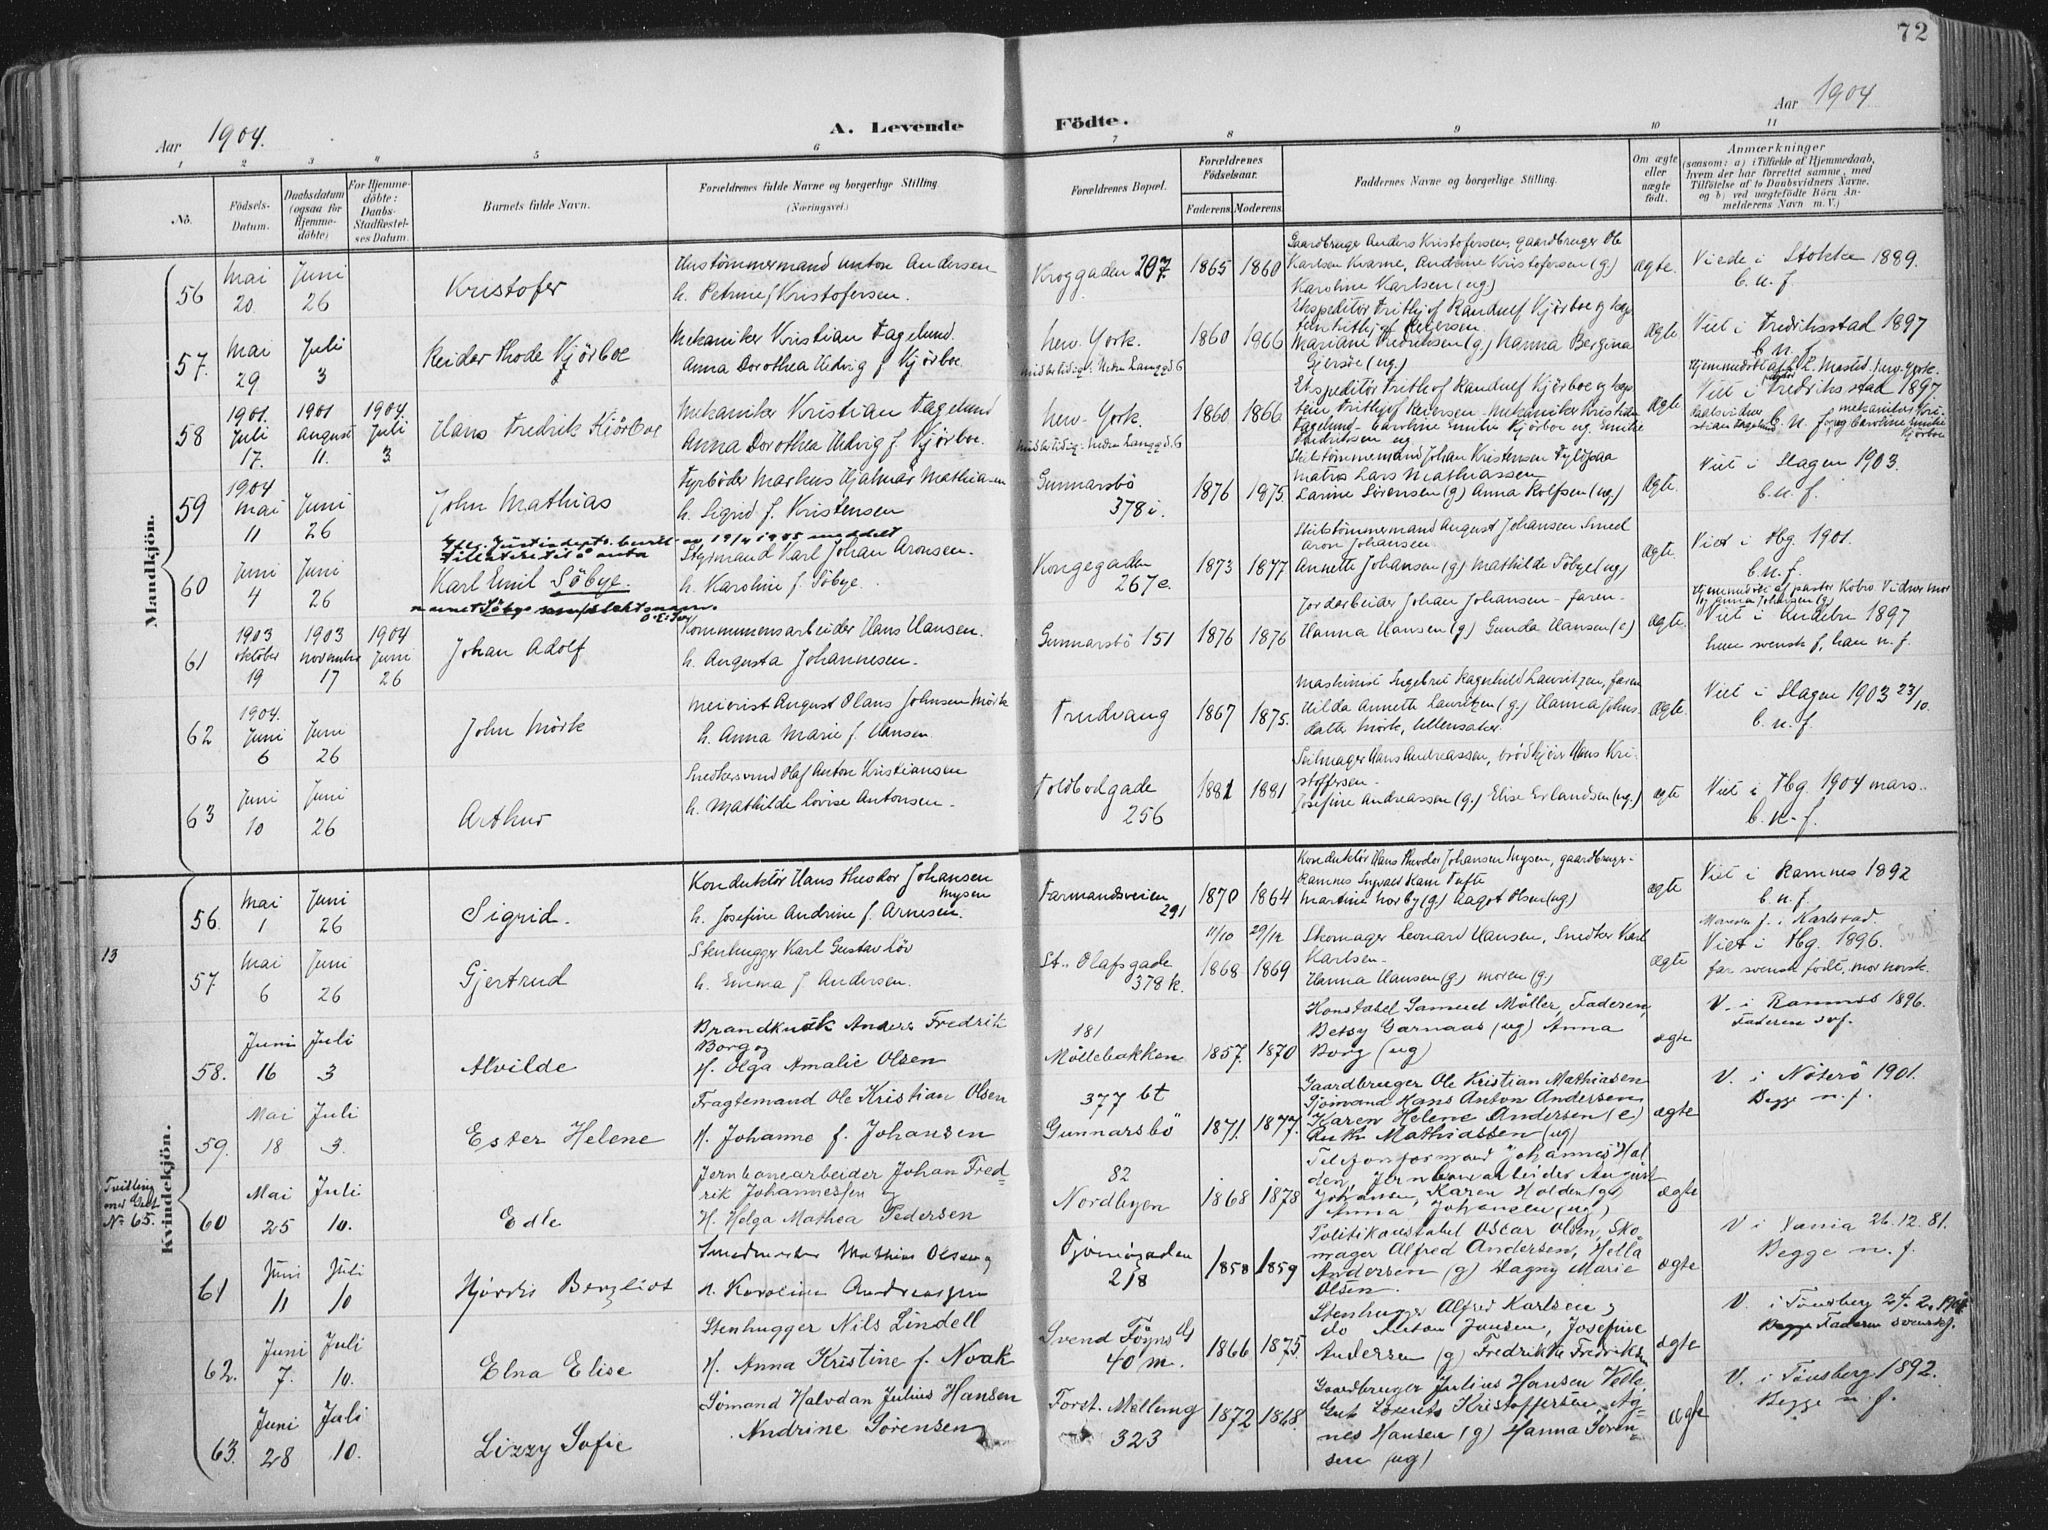 72
Aar 1904.
A. Levende Födte.
Aar 1904
1 2 3 4 5 6 7 8 9 10 11
No.
Födsels-Datum.
Daabsdatum (ogsaa for Hjemme-döbte)
For Hjemme-döbte: Daabs-Stadfæstel-ses Datum.
Barnets fulde Navn.
Forældrenes fulde Navne og borgerlige Stilling. (Næringsvei)
Forældrenes Bopæl.
Forældrenes Födselsaar.
Faderens. Moderens.
Faddernes Navne og borgerlige Stilling.
Om ægte eller uægte födt.
Anmærkninger
(saasom: a) i Tilfælde af Hjemmedaab, hvem der har forrettet samme, med Tilföielse af to Daabsvidners Navne. og b) ved uægtefödte Börn An-melderens Navn m. V.)
Mandkjön.
56
Mai 20
Juni 26
Kristofer
Hustömmermand Anton Andersen
h. Petrine f Kristofersen.
Kroggaden 297.
1865 1860
Gaardbruger Anders Kristofersen, gaardbruger Ole
Karlsen Kvarne, Andrine Kristofersen (g)
Karoline Karlsen (ug)
ægte.
Viede i Stokke 1889.
b. n. f.
57.
Mai 29
Juli 3
Reidar Thode Kjörboe
Mekaniker Kristian Fagelund.
Anna Dorothea Hedvig f Kjörboe.
New. York.
midlertidig. Nedre Langgd 6
1860 1866
Ekspeditör Frithjof Randulf Kjörboe og kap-
tein Frithjof Reiersen.
Mariane Fredriksen (g) Nanna Bergina
Gjersöe (ug)
ægte
Viet i Fredriksstad 1897
b. n. f.
58
1901. Juli 17.
1901 August 11.
1904. Juli 3.
Hans Fredrik Kjörboe
Mekaniker Kristian Fagelund
Anna Dorothea Hedvig f. Kjörboe.
New York.
midlertidig. Nedre Langgd 6
1860 1866
Ekspeditör Frithjof Randulf Kjörboe og kap-
tein Frithjof Reiersen - Mekaniker Kristian
Fagelund - Caroline Emilie Kjörboe ug. Emilie
Fredriksen ug
ægte
Viet i Fredriksstad 1897
b. n. f.
59
1904 Mai 11
Juni 26
John Mathias
Fyrböder Markus Hjalmar Mathiasen
h. Sigrid f. Kristensen
Gunnarsbö
378 i.
1876 1875.
Skibstömmermand Johan Kristensen
Matros Lars Mathiassen
Larine Sörensen (g) Anna Rolfsen (ug)
ægte.
Viet i Slagen 1903.
b. n. f.
60
Juni 4
Juni 26
Karl Emil Söbye.
Styrmand Karl Johan Aronsen.
h. Karoline f. Söbye.
Kongegaden
267 e.
1873 1877
Skibstömmermand August Johansen Smed
Aron Johansen
Annette Johansen (g) Mathilde Söbye (ug)
ægte.
Viet i Tbg 1901.
b. n. f.
61
1903 oktober 19
1903 november 17
1904 Juni 26
Johan Adolf
Kommunearbeider Hans Hansen.
h. Augusta Johannesen.
Gunnarsbö 151
1876 1876
Jordarbeider Johan Johansen - faren -
Hanna Hansen (g) Gunda Hansen (e)
ægte.
Hjemmedöbt af pastor Kobro
Viet i Andebu 1897
hun svensk f, han n. f.
62
1904. Juni 6
Juni 26
John Mörk
Meierist August Olaus Johnsen Mörk
h. Anna Marie f. Hansen.
Trudvang
1867 1875.
Maskinist Ingebret Ragnhild Lauritzen, faren
Hilda Annette Lauritzen (g.) Hanna Johns
datter Mörk, Ullensaker.
ægte.
Viet i Slagen 1903 23/10.
b. n. f.
63
Juni 10
Juni 26
Arthur
Snedkersvend Olaf Anton Kristiansen
h. Mathilde Lovise Antonsen.
Toldbodgade
256
1881 1881
Seilmager Hans Andreassen, brödkjörer Hans Kri-
stoffersen -
Josefine Andreassen (g.) Elise Erlandsen (ug.)
ægte
Viet i Tbg. 1904 mars.
b. n. f.
Kvindekjön.
56.
Mai 1
Juni 26
Sigrid.
Konduktör Hans Theodor Johansen
Mysen
h. Josefine Andrine f. Arnesen.
Farmandsveien
291
1870 1864
Konduktör Hans Theodor Johansen Mysen, gaardbruger
Martine Norby (g) Aagot Olsen (ug)
ægte
Viet i Ramnes 1892
b. n. f.
13
57
Mai 6
Juni 26
Gjertrud
Stenhugger Karl Gustav Löv
h. Emma f Andersen.
St. Olafsgade
378 k.
11/10 1868
29/12 1869
Skomager Leonard Hansen, Snedker Karl
Karlsen -
Hanna Hansen (g) moren (g)
ægte
Viet i Tbg. 1896.
far svensk födt, mor norsk.
58.
Juni 16
Juli 3
Alvilde
Brandkusk Anders Fredrik
Borg og
H. Olga Amalie Olsen
181
Möllebakken
1857. 1870
Konstabel Samuel Möller, Faderen,
Betsy Garnaas (ug) Anna
Borg (ug)
ægte
V. i Ramnes 1896.
Faderen sv f.
59.
Mai 18
Juli 3.
Ester Helene
Fragtemand Ole Kristian Olsen
H. Johanne f. Johansen
377 bt
Gunnarsbö
1871. 1877.
Gaardbruger Ole Kristian Mathiasen
Sjömand Hans Anton Andersen
Karen Helene Andersen (e)
Ruth Mathiassen (ug)
ægte
V. i Nöterö 1901.
Begge n. f.
Tvilling
N. 65.
60
Mai 25
Juli 10.
Edle
Jernbanearbeider Johan Fred-
rik Johannessen og
H. Helga Mathea Pedersen
82
Nordbyen
1868 1878
Telefonformand Johannes Hol-
den, Jernbanearbeider August
Johansen, Karen Holden (g)
Anna Johansen (ug)
ægte
61
Juni 11
Juli 10
Hjördis Bergliot
Smedmester Mathias Olsen og
H. Karoline Andreassen
Tjömögaden
218
1858 1859
Politikonstabel Oscar Olsen, Sko-
mager Alfred Andersen, Hella
Andersen (g) Dagny Marie
Olsen.
ægte
V i Xania 26.12.81.
Begge n. f.
62.
Juni 7.
Juli 10.
Elna Elise
Stenhugger Nils Lindell
H. Anna Kristine f. Noak
Svend Föyns Gt
40 m.
1866 1875.
Stenhugger Alfred Karlsen,
do Anton Jansen, Josefine
Andersen (g) Fredrikke Fredriksen
ægte
V. i Tönsberg 24.2.
Faderen svensk f.
63.
Juni 28
Juli 10.
Lizzy Sofie
Sömand Halvdan Julius Hansen
Andrine Sörensen
Forst. Mellemg
323
1872 1868.
Gaardbruger Julius Hansen Velle,
Kristoffersen, Ag-
nes Hansen (g) Hanna Sören-
sen (ug)
ægte
V. i Tönsberg 1892.
Begge n. f.